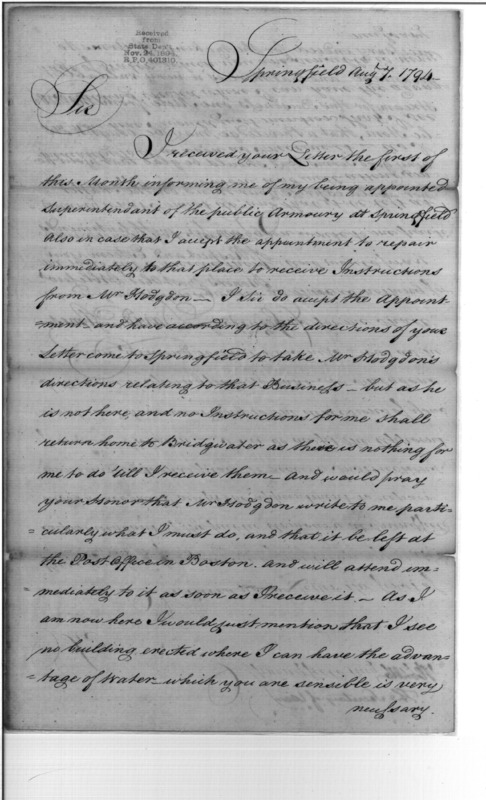 Received
from
State Dep't
Nov. 24, 1894
R.P.O. 401310
Springfield Augt. 7. 1794
Sir
I received your Letter the first of
this Month informing me of my being appointed
Superintendant of the public Armoury at Springfield
Also in case that I accept the appointment to repair
immediately to that place to receive Instructions
from Mr Hodgdon — I Sir do accept the Appoint-
=ment and have according to the directions of your
Letter come to Springfield to take Mr Hodgdon's
directions relating to that Business – but as he
is not here, and no Instructions for me shall
return home to Bridgwater as there is nothing for
me to do 'till I receive them – And would pray
your Honor that Mr Hodgdon write to me parti-
=cularly what I must do, and that it be left at
the Post Office in Boston. And will attend im=
=mediately to it as soon as I receive it – As I
am now here I would just mention that I see
no building erected where I can have the advan-
=tage of Water which you are sensible is very
necessary.